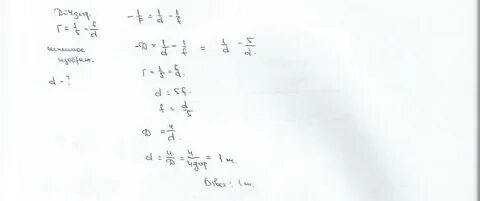 D=4дптр.
Г=1/5=f/d.
мнимое
изображ.
d-?
-1/F=1/d-1/f
-D=1/d-1/f = 1/d-5/d.
Г=1/5=f/d.
d=5f.
f=d/5
D=4/d.
d=4/D=4/4дптр=1м.
Ответ: 1м.